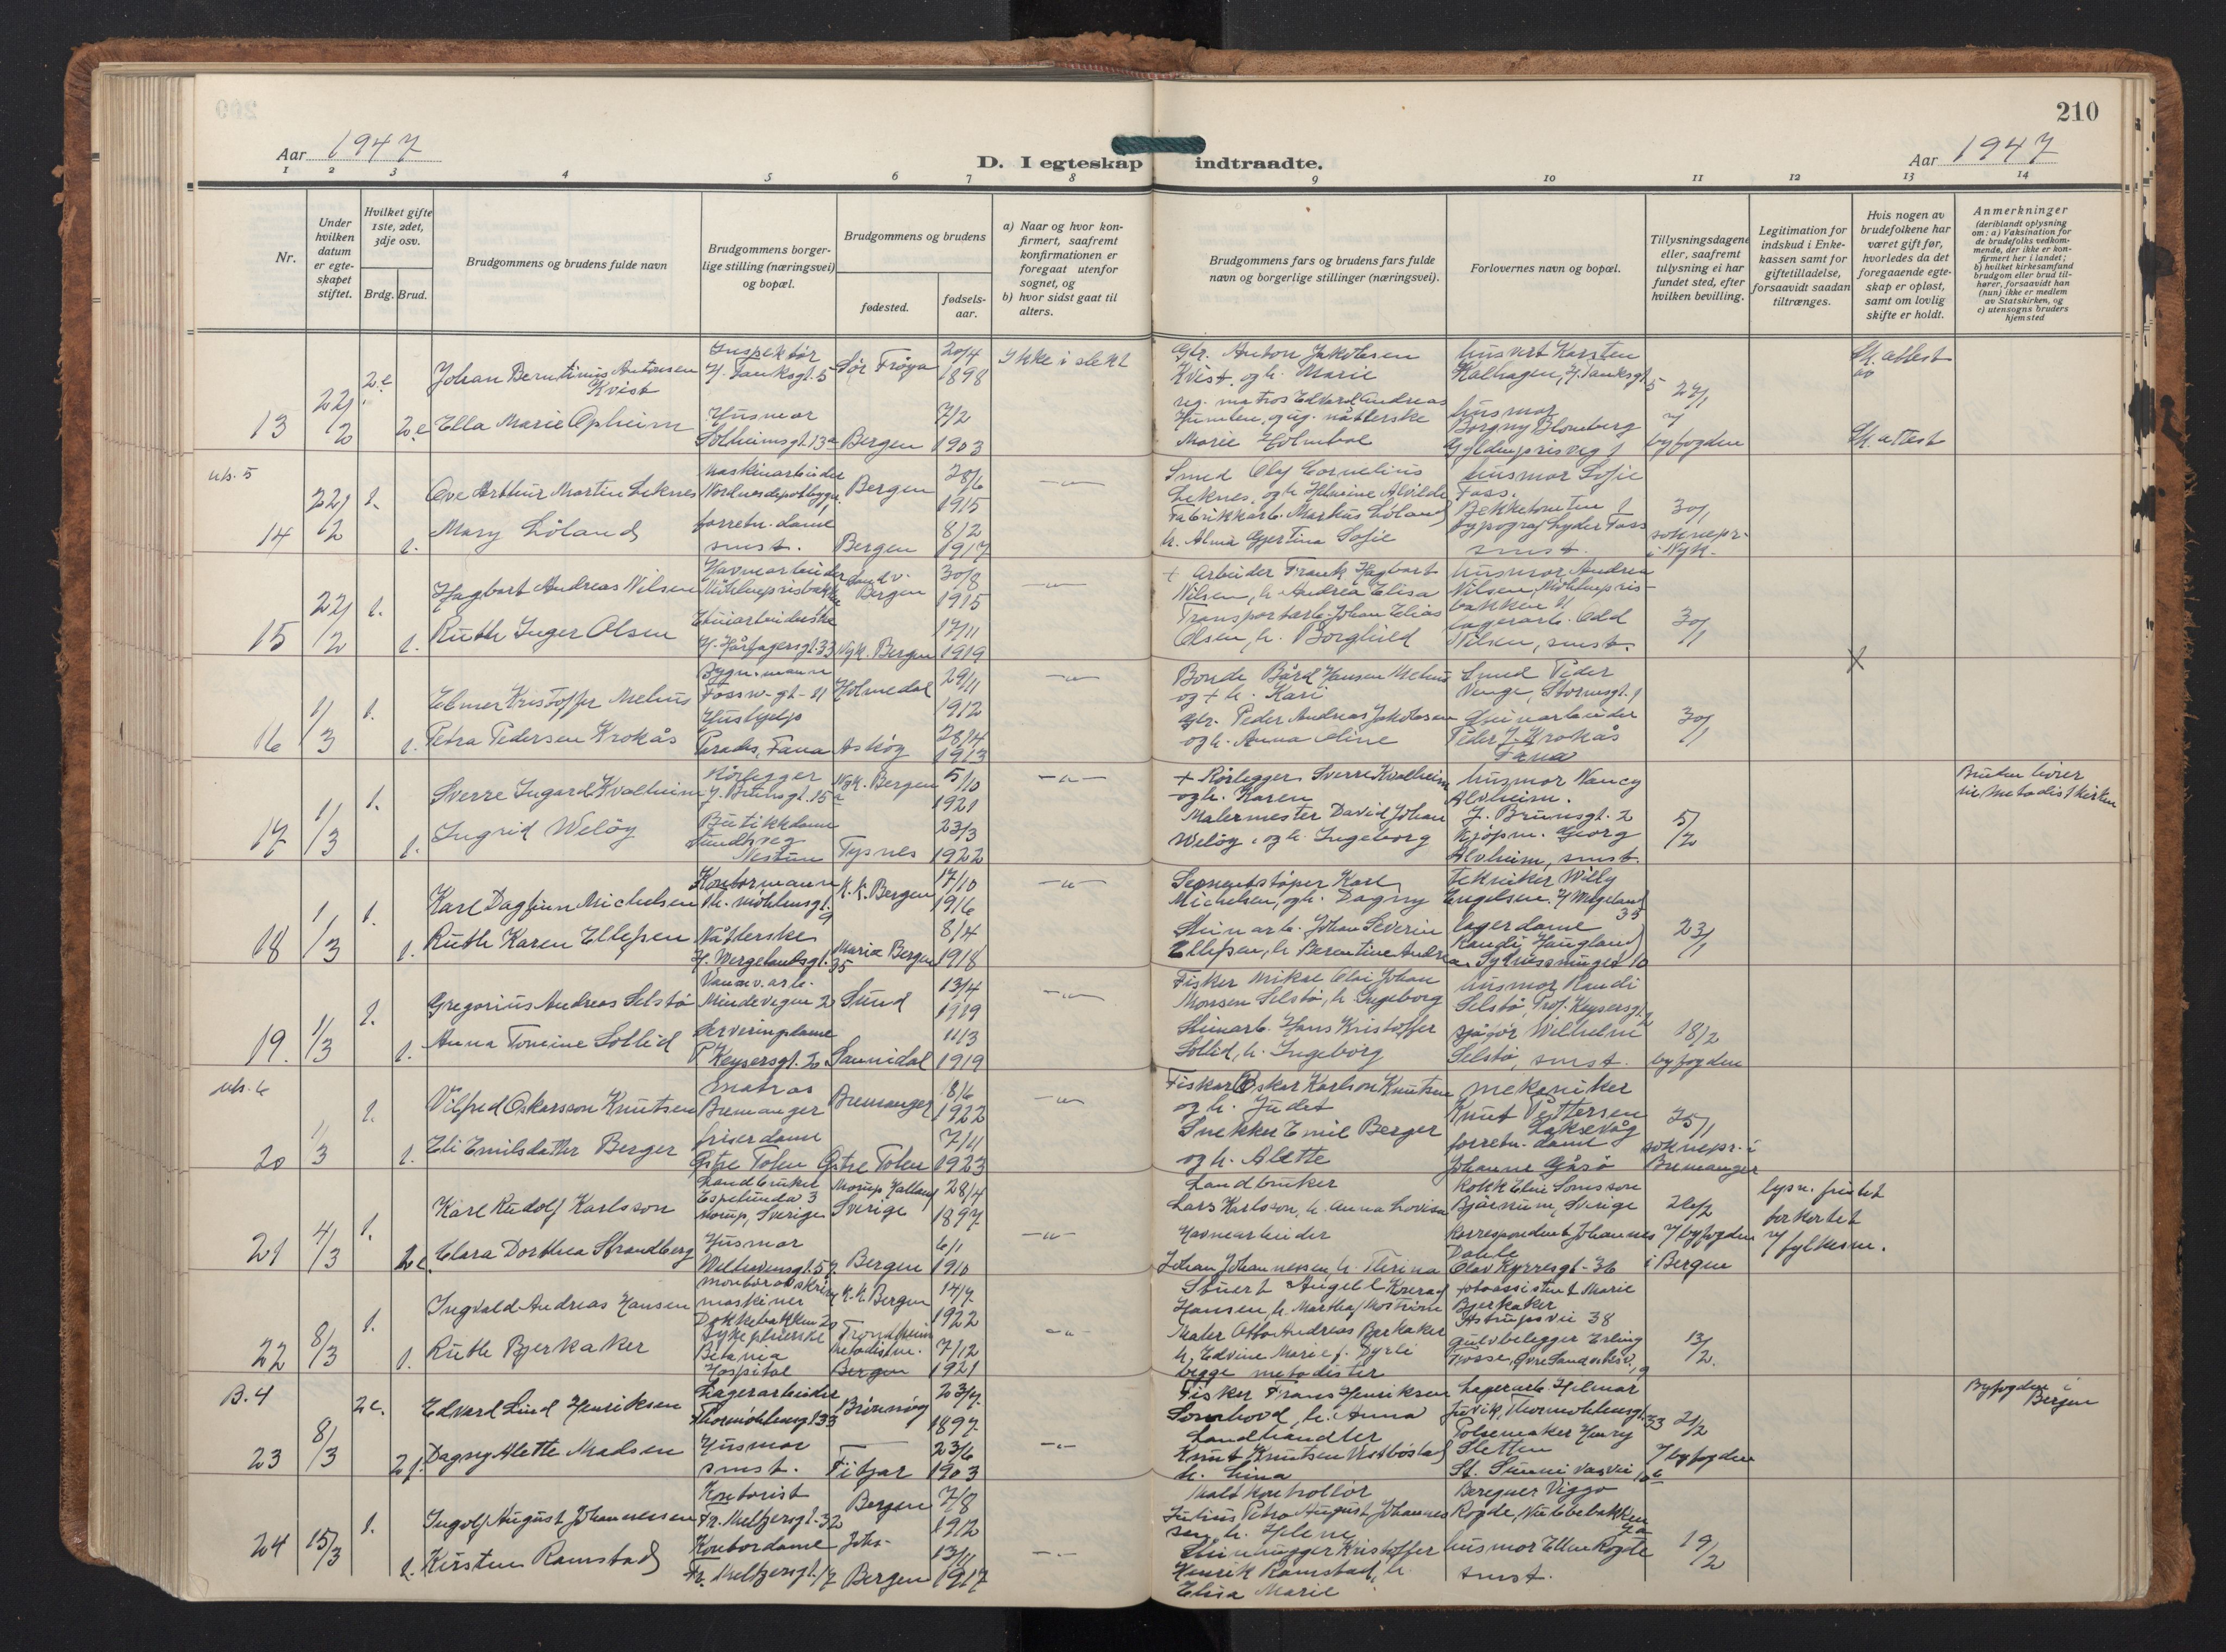 210
Aar 1947
D. I egteskap indtraadte.
Aar 1947
1 2 3 4 5 6 7 8 9 10 11 12 13 14
Nr.
Under hvilken datum er egteskapet stiftet.
Hvilket gifte 1ste, 2det, 3dje osv.
Brdg. Brud.
Brudgommens og brudens fulde navn
Brudgommens borgerlige stilling (næringsvei) og bopæl.
Brudgommens og brudens
fødested.
fødselsaar.
a) Naar og hvor konfirmert, saafremt konfirmationen er foregaat utenfor sognet, og
b) hvor sidst gaat til alters.
Brudgommens fars og brudens fars fulde navn og borgerlige stillinger (næringsvei).
Forlovernes navn og bopæl.
Tillysningsdagene eller, saafremt tillysning ei har fundet sted, efter hvilken bevilling.
Legitimation for indskud i Enkekassen samt for giftetilladelse, forsaavidt saadan tiltrænges.
Hvis nogen av brudefolkene har været gift før, hvorledes da det foregaaende egteskap er opløst, samt om lovlig skifte er holdt.
Anmerkninger
(deriblandt oplysning om: a) Vaksination for de brudefolks vedkommende, der ikke er konfirmert her i landet;
b) hvilket kirkesamfund brudgom eller brud tilhører, forsaavidt han (hun) ikke er medlem av Statskirken, og
c) utensogns bruders hjemsted
13 22/2 2e Johan Berntinius Antonsen Kvist
Inspektør
Sør Frøya 20/4 1898 Ikke i slekt
Gbr. Anton Jakobsen Kvist og h. Marie
husvert Karsten Kalhagen
27/1
Sk. attest
2e Ella Marie Opheim
Husmor Solheimsgt. 13a Bergen 7/2 1903
Marie Holmboe
husmor Borgny Blomberg
byfogden
Sk. attest
uts. 5
14 22/2 1. Ove Arthur Martin Leknes
Maskinarbeider
Bergen 28/6 1915
Smed Olaf Cornelius Leknes og h. Helmine Alvilde
husmor Sofie Foss.
30/1
1. Mary Löland
forretn. dame smst. Bergen 8/2 1917
Fabrikkarb. Markus Löland h. Alma Gjertina Sofie
typograf Lyder Foss smst.
soknepr. i Nyk.
15 22/2 1. Hagbart Andreas Nilsen
Havnearbeider
Sandv. Bergen 30/8 1915
+ Arbeider Frank Hagbart Nilsen, h. Andrea Elisa
husmor Andrea Nilsen, Möhlenprisbakken 11
1. Ruth Inger Olsen
H. Hårfagersgt. 33 Nyk. Bergen 17/11 1919
Transportarb. Johan Elias Olsen, h. Borghild
lagerarb. Odd Nilsen, smst.
30/1
16 1/3 1. Elmer Kristoffer Melnes
Fosswgt. 11 Holmedal 29/11 1912
Bonde Bård Hansen Melnes og + h. Kari
Smed Peder Venge, Stormsgt. 1
X
1. Petra Pedersen Krokås
Hushjelp Paradis, Fana Askøy 28/4 1913
Gbr. Peder Andreas Jakobsen og h. Anna Oline
Peder J. Krokås Fana
30/1
17 1/3 1. Sverre Ingard Kvalheim
Rörlegger J. Brunsgt. 15 Nyk. Bergen 5/10 1921
+ Rörlegger Sverre Kvalheim og h. Karen
husmor Nancy Alvheim. J. Brunsgt. 2
Bruden hörer til metodistkirken
1. Ingrid Welöy
Butikkdame Nestun Tysnes 23/3 1922
Malermester David Johan Welöy, og h. Ingeborg
kjöpm. Georg Alvheim, smst.
5/2
18 1/3 1. Karl Dagfinn Michelsen
Kontormann Th. Möhlensgt. 9 K.K. Bergen 17/10 1916
Sementstöper Karl Michelsen, og h. Dagny
Tekniker Willy Engelsen, H. Wergelandsgt. 35
1. Ruth Karen Ellefsen
Nåtlerske H. Wergelandsgt. 35 Maria Bergen 8/4 1918
Johan Severin Ellefsen, h. Berentine Andrea
lagerdame Randi Haugland
23/1
19. 1/3 1. Gregorius Andreas Selstö
Mindevegen 2 Sund 13/4 1919
Fisker Mikal Olai Johan Monsen Selstö, h. Ingeborg
husmor Randi Selstö, Prof. Keysersgt. 2
1. Anna Tomine Sollid
Serveringsdame P. Keysersgt. 2 Sannidal 11/3 1919
Hans Kristoffer Sollid, h. Ingeborg
sjåför Wilhelm Selstö, smst.
18/2 byfogden
uts. 6
20 1/3 1. Vilfred Oskarsson Knutsen
matros Bremanger Bremanger 8/6 1922
Fisker Oskar Karlson Knutsen og h. Judit
mekaniker Knut Pettersen Laksevåg
1. Eli Emilsdatter Berger
friserdame Østre Toten Østre Toten 7/11 1923
Snekker Emil Berger og h. Alette
forretn. dame Johanne Gåsö
25/1 soknepr. i Bremanger
21 4/3 1. Karl Rudolf Karlsson
Landbruker Espelunda 3 Morup, Sverige
Morup, Halland Sverige 28/4 1897
Landbruker Lars Karlsson, h. Anna Lovisa
Bjärnum, Sverige
26/2 byfogden i Bergen
lysn. fristet forkortet v/ fylkesm.
2e. Clara Dorthea Strandberg
Husmor Welhavensgt. 57 Bergen 6/1 1910
Havnearbeider Johan Johannessen, h. Therina
Korrespondent Johannes Dahle Olav Kyrresgt. 36
22 8/3 1. Ingvald Andreas Hansen
Dokkebakken 20 K.K. Bergen 14/7 1922
Stuert Angell Konrad Hansen, h. Martha f. Moström
Marie Bjerkaker Astrupsvei 38
1. Ruth Bjerkaker
Sykepleierske Betania Hospital
Trondheim metodistm. Bergen 7/12 1921
Maler Otto Andreas Bjerkaker h. Edvine Marie f. Dyrli begge metodister
gulvbelegger Erling Fosse
13/2.
B. 4
23 8/3 2e. Edvard Lind Henriksen
Lagerarbeider Thormöhlensgt. 33 Brönnöy 23/7 1897
Fisker Frans Henriksen Somhovd, h. Anna
Lagerarb. Hilmar Juvik, Thormöhlensgt. 33
21/2
Byfogden i Bergen
2f. Dagny Alette Madsen
Husmor smst. Fitjar 23/6 1903
Landhandler Knut Knutsen Vestböstad h. Lina
Pölsemaker Henry Sletten
byfogden
24 15/3 1. Ingolf August Johannessen
Kontorist Fr. Meltzersgt. 32 Bergen 7/8 1912
Maltkontrollör Julius Petro August Johannessen, h. Helene
Bereguer Viggo Rogde, Nubbebakken
1. Kirsten Ramstad
Kontordame Fr. Meltzersgt. 17 Johs. Bergen 13/11 1917
Steinhugger Kristoffer Henrik Ramstad, h. Elisa Marie
husmor Ellen Rogde smst.
19/2